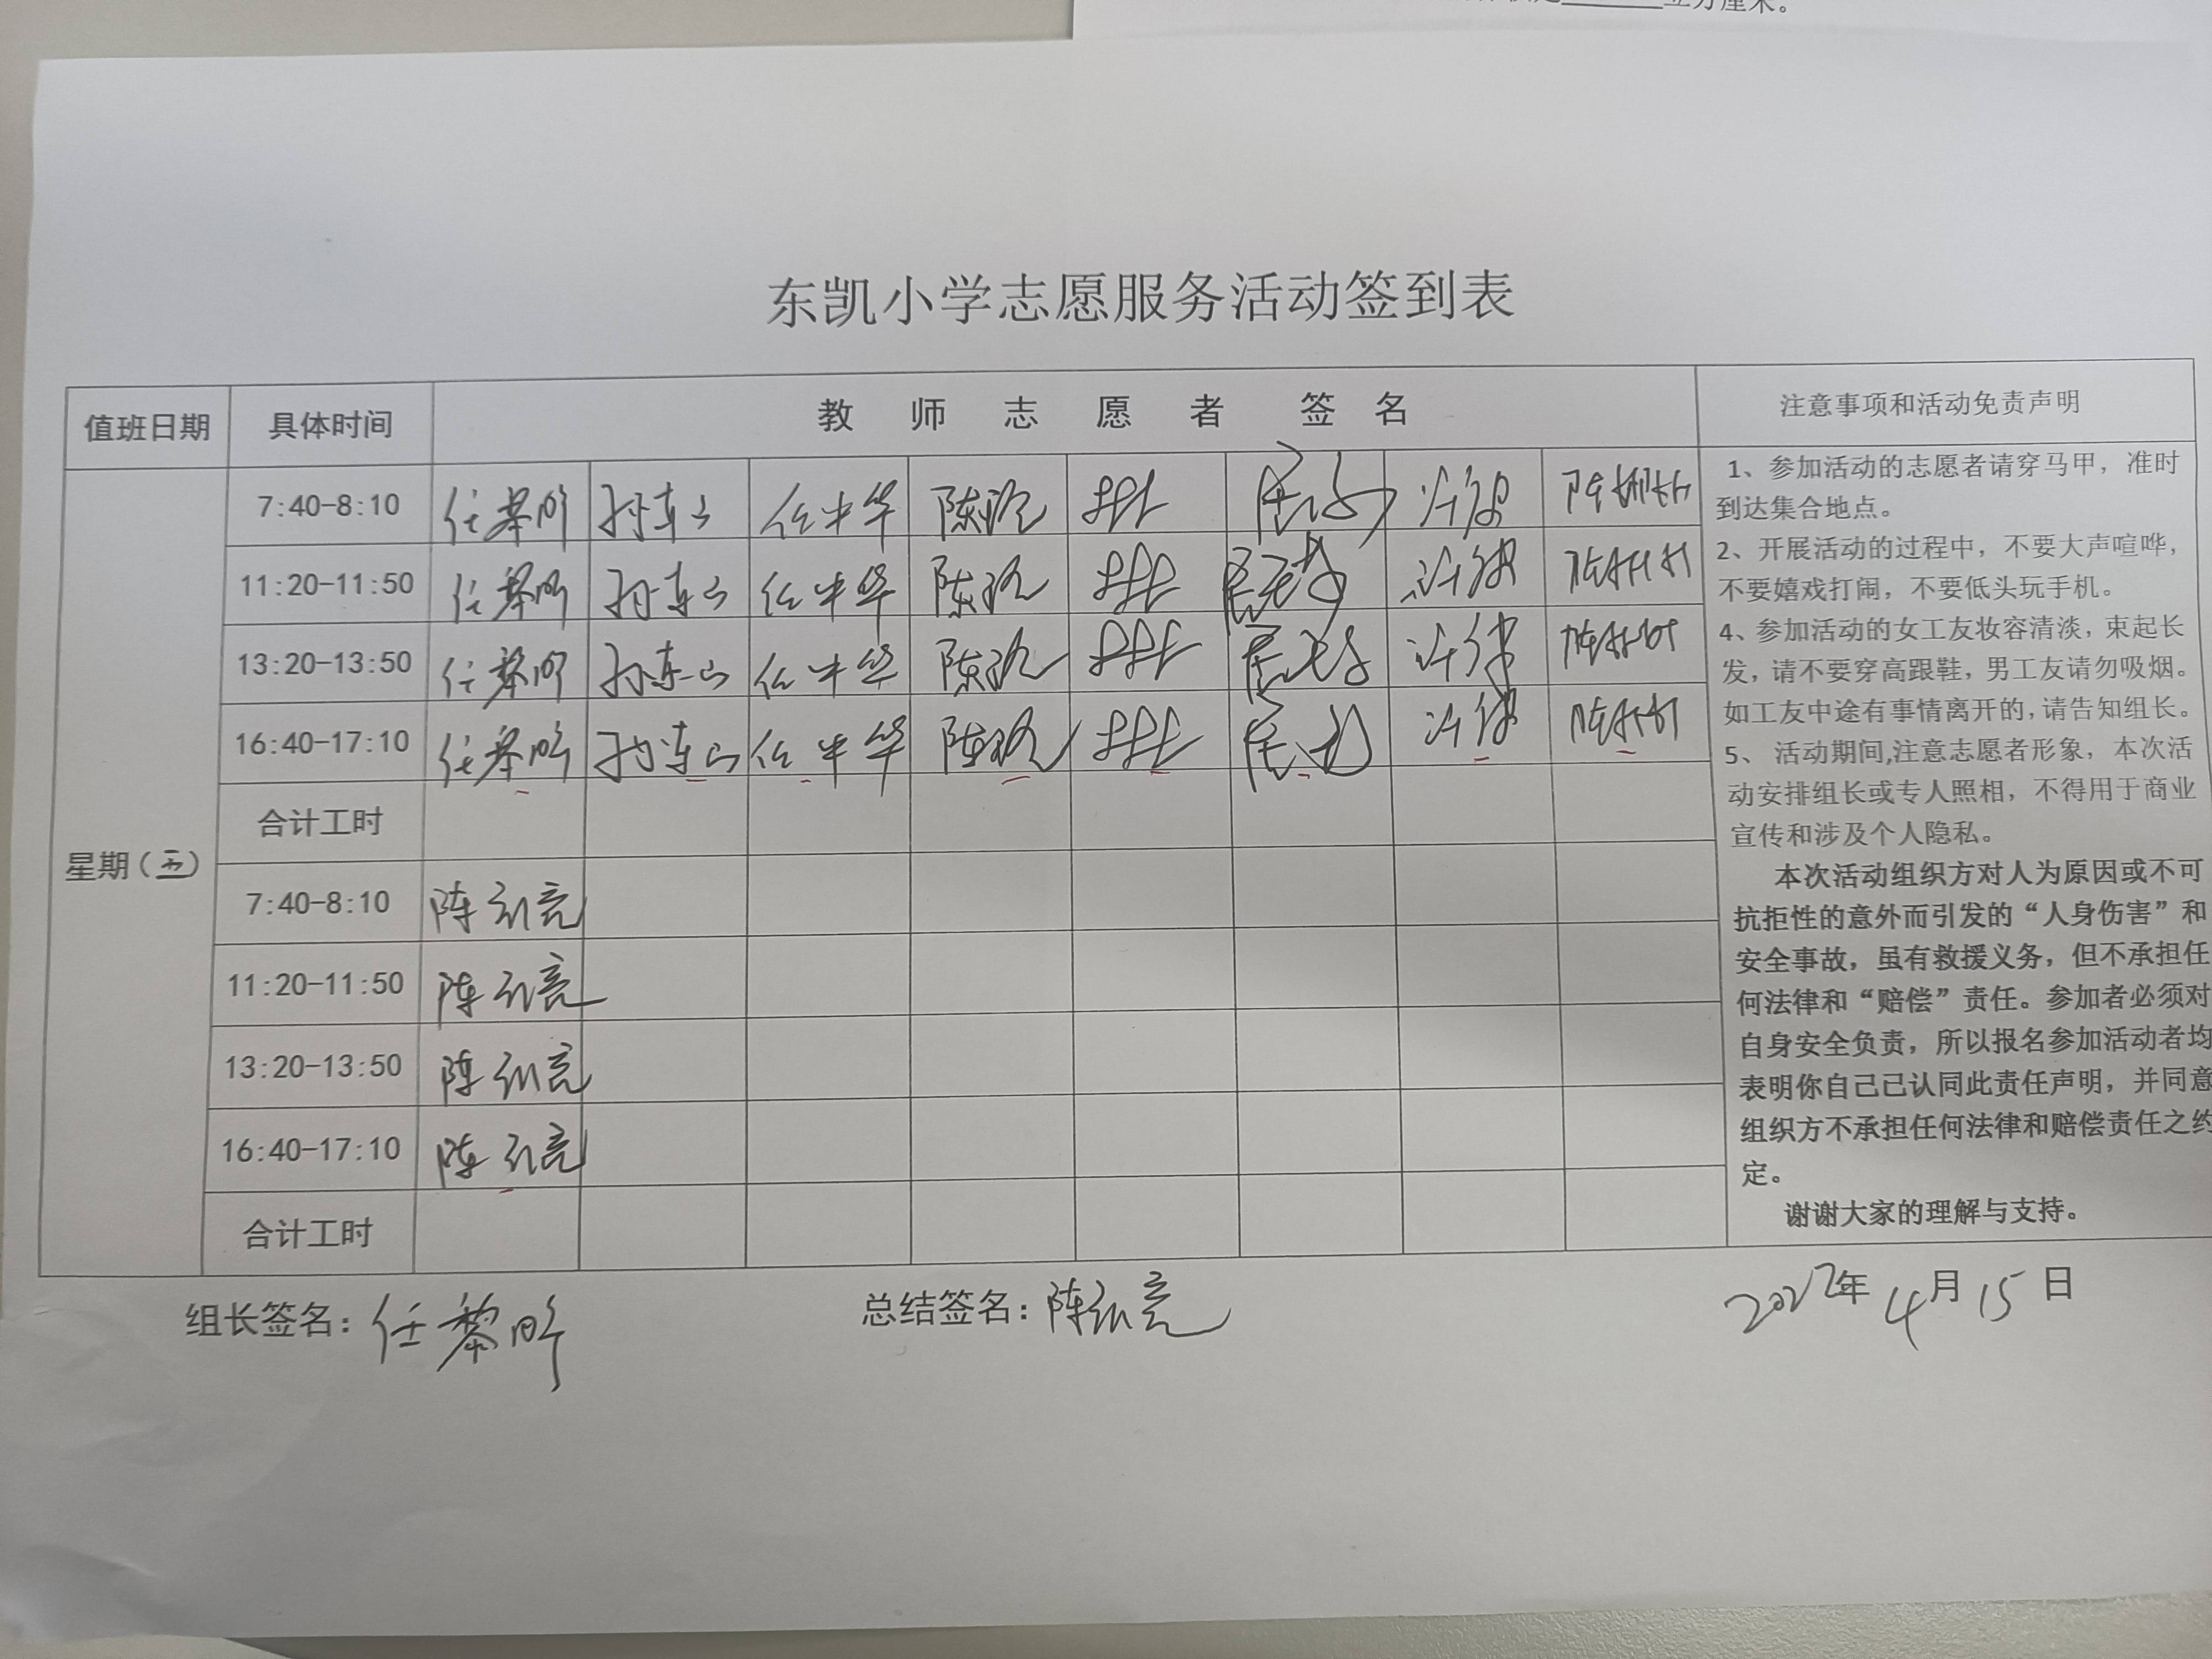 立方厘米。
东凯小学志愿服务活动签到表
值班日期 具体时间 教师志愿者签名 注意事项和活动免责声明
星期（五）
7:40-8:10 任黎明 孙东 任中华 陈
11:20-11:50 任黎明 孙东 任中华 陈
13:20-13:50 任黎明 孙东 任中华 陈
16:40-17:10 任黎明 孙东 任中华 陈
合计工时
7:40-8:10 陈 亮
11:20-11:50 陈 亮
13:20-13:50 陈 亮
16:40-17:10 陈 亮
合计工时
1、参加活动的志愿者请穿马甲，准时
到达集合地点。
2、开展活动的过程中，不要大声喧哗，
不要嬉戏打闹，不要低头玩手机。
4、参加活动的女工友妆容清淡，束起长
发，请不要穿高跟鞋，男工友请勿吸烟。
如工友中途有事情离开的，请告知组长。
5、 活动期间,注意志愿者形象，本次活
动安排组长或专人照相，不得用于商业
宣传和涉及个人隐私。
本次活动组织方对人为原因或不可
抗拒性的意外而引发的“人身伤害”和
安全事故，虽有救援义务，但不承担任
何法律和“赔偿”责任。参加者必须对
自身安全负责，所以报名参加活动者均
表明你自己已认同此责任声明，并同意
组织方不承担任何法律和赔偿责任之约
定。
谢谢大家的理解与支持。
组长签名：任黎明 总结签名：陈 亮 2022年4月15日